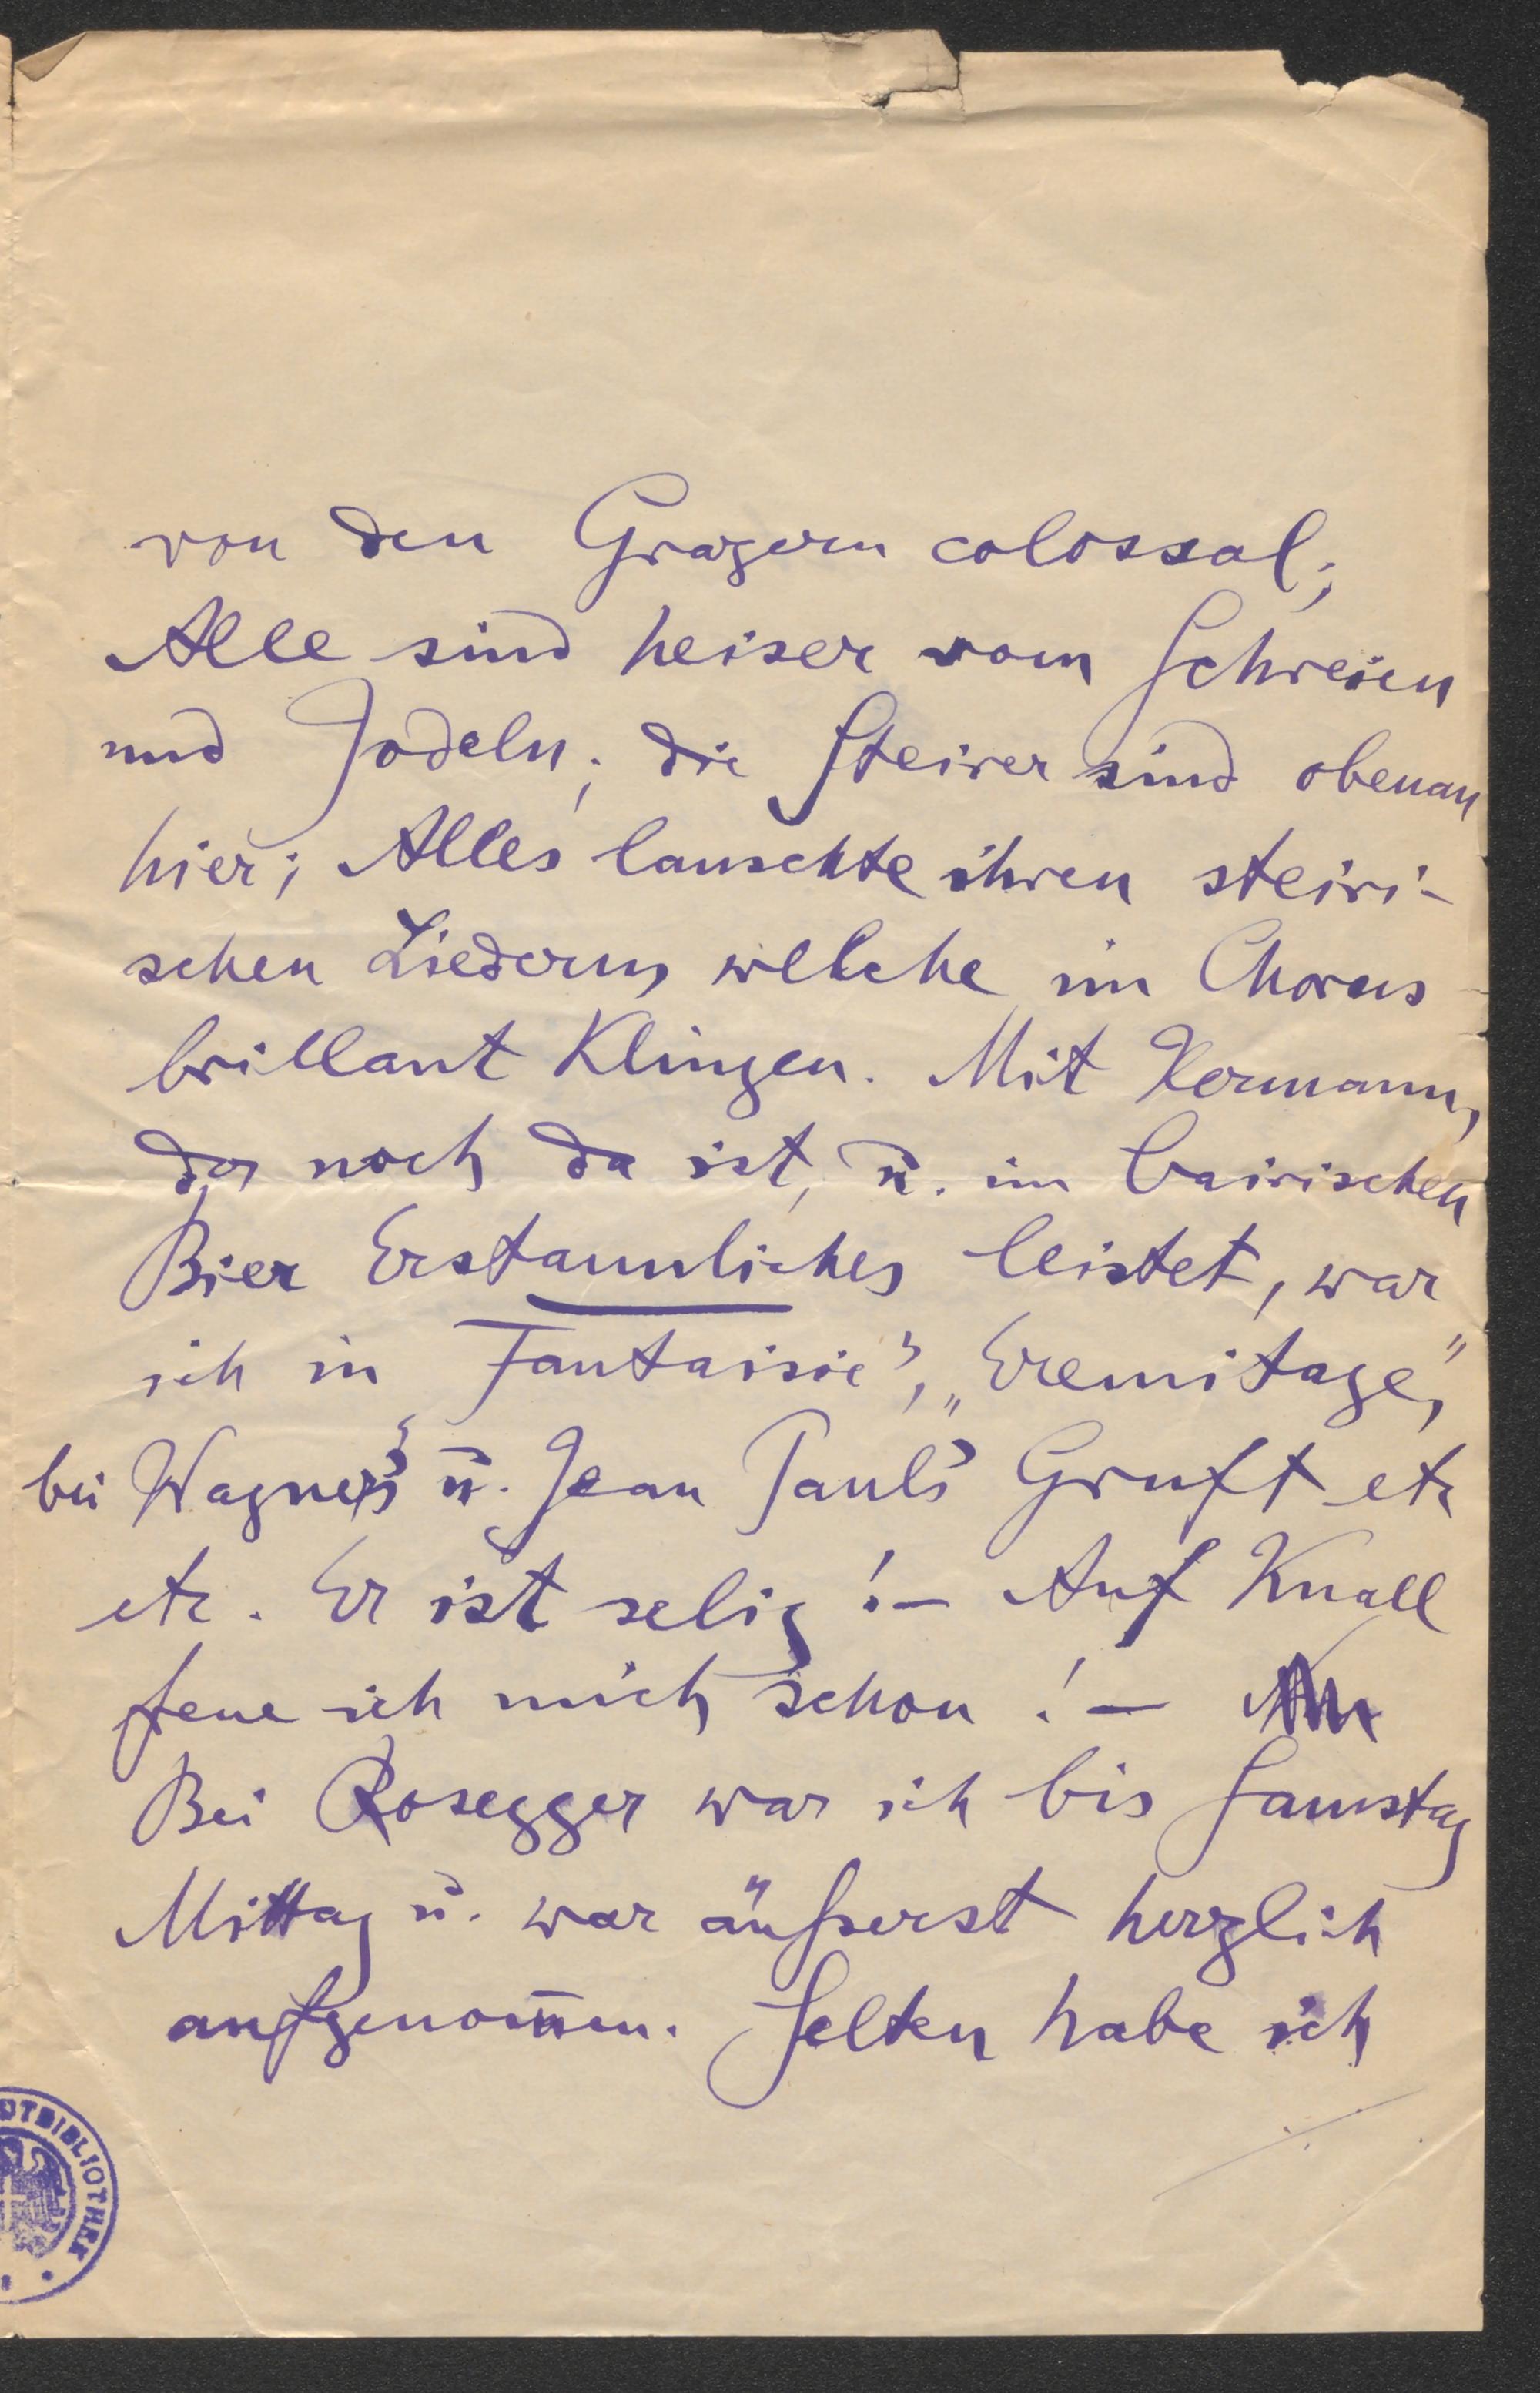 von den Grazern colossal;
Alle sind heiser vom Schreien
und Jodeln; die Steirer sind obenan
hier; Alles lauschte ihren steiri-
schen Liedern, welche im Chorus
brillant klingen. Mit Hermann,
der noch da ist, u. im bairischen
Bier Erstaunliches leistet, war
ich in Fantaisie", „Eremitage",
bei Wagner's u. Jean Paul's Gruft etc
etc. Er ist selig! – Auf Knall
freue ich mich schon! –
Bei Rosegger war ich bis Samstag
Mittag u. war äußerst herzlich
aufgenom̄en. Selten habe ich
DTBIBLIOTHEK